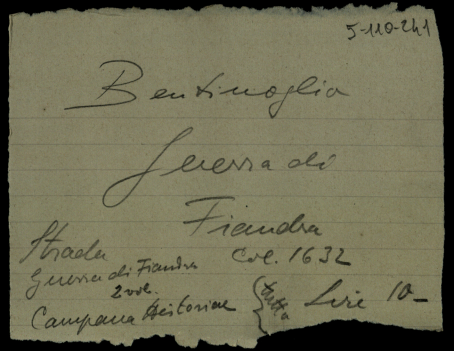 5-110-241
Bentivoglio
Guerra di
Fiandra
Col. 1632
Strada
Guerra di Fiandra
2 vol.
Campana Historiae
tutto Lire 10-